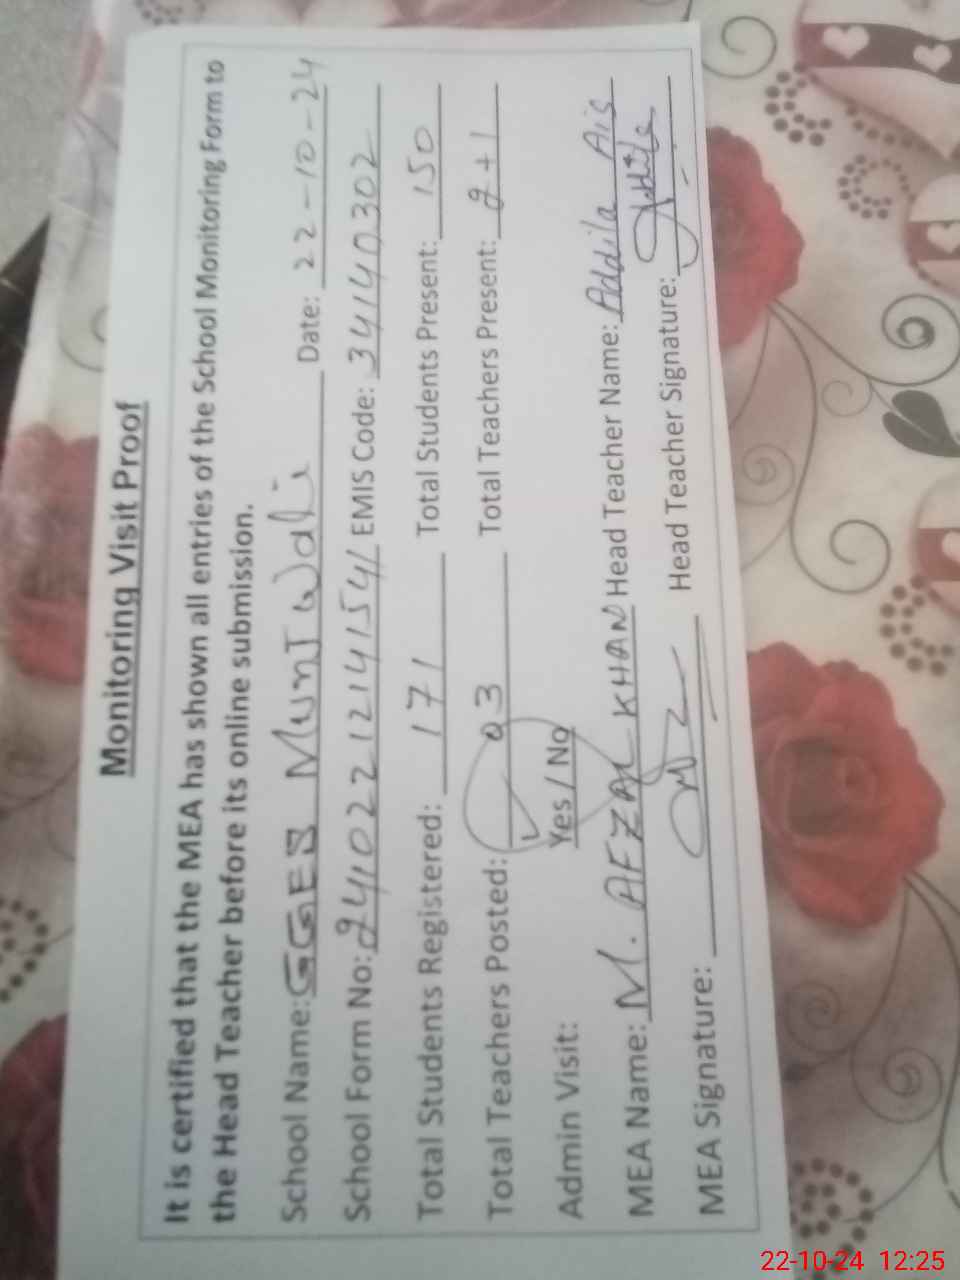 Monitoring Visit Proof
It is certified that the MEA has shown all entries of the School Monitoring Form to
the Head Teacher before its online submission.
School Name: GGES Munt Wali Date: 22-10-24
School Form No: 24102212141541 EMIS Code: 34140302
Total Students Registered: 171 Total Students Present: 150
Total Teachers Posted: 03 Total Teachers Present: 2+1
Admin Visit: Yes / No
MEA Name: M. AFZAL KHAN Head Teacher Name: Addila Ais
MEA Signature: Head Teacher Signature:
22-10-24 12:25